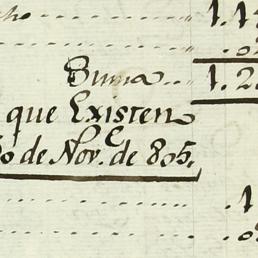 ho 1.1
.0
Suma 1.2
que Existen
o de Nov.e de 805.
.1
.0